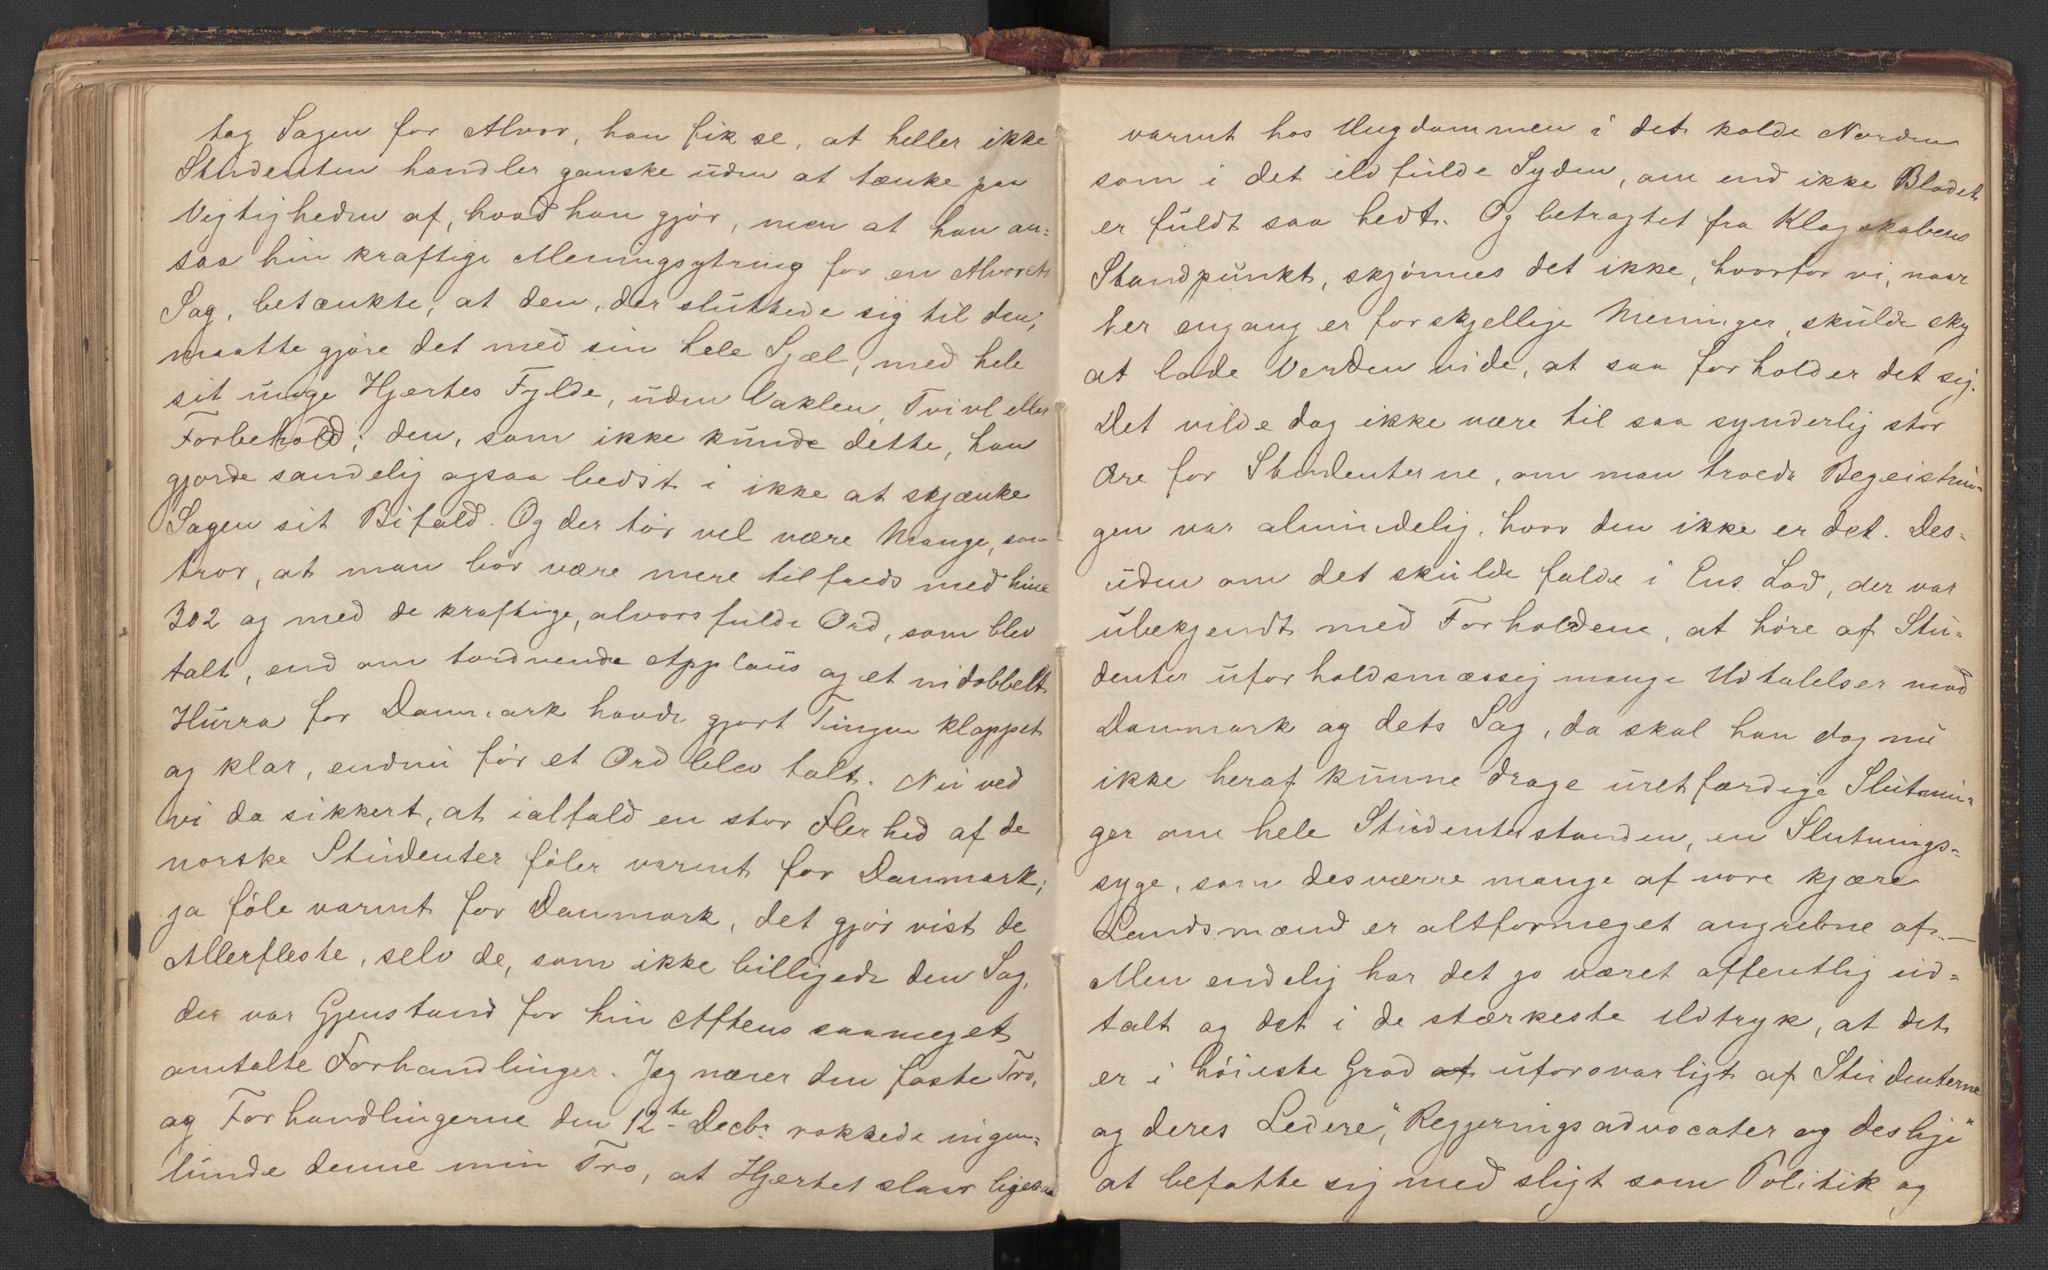 tog Sagen for Alvor, han fik se, at heller ikke
Studenten handler ganske uden at tænke paa
Vigtigheden af, hvad han gjør, men at han an=
saa hin kraftige Meningsytring for en Alvorets
Sag, betænkte, at den, der sluttede sig til den,
maatte gjøre det med sin hele Sjæl, med hele
sit unge Hjertes Fylde, uden Vaklen, Tvivl eller
Forbehold; den, som ikke kunde dette, han
gjorde sandelig ogsaa bedst i ikke at skjænke
Sagen sit Bifald. Og der tør vel være Mange, som
tror, at man bør være mere tilfreds med hine
302 og med de kraftige, alvorsfulde Ord, som blev
talt, end om tordnende Applaus og et nidobbelt
Hurra for Danmark havde gjort Tingen klappet
og klar, endnu før et Ord blev talt. Nu ved
vi da sikkert, at ialfald en stor Flerhed af de
norske Studenter føler varmt for Danmark;
ja føle varmt for Danmark, det gjør vist de
Allerfleste, selv de, som ikke billigede den Sag,
der var Gjenstand for hin Aftens saameget
omtalte Forhandlinger. Jeg nærer den faste Tro,
og Forhandlingerne den 12te Decbr. rokkede ingen=
lunde denne min Tro, at Hjertet slaar ligesaa
varmt hos Ungdommen i det kolde Norden
som i det ildfulde Syden, om end ikke Blodet
er fuldt saa hedt. Og betragtet fra Klogskabens
Standpunkt, skjønnes det ikke, hvorfor vi, naar
her engang er forskjellige Meninger, skulde sky
at lade Verden vide, at saa forholder det sig.
Det vilde dog ikke være til saa synderlig stor
Ære for Studenterne, om man troede Begeistrin=
gen var almindelig, hvor den ikke er det. Des=
uden om det skulde falde i Ens Lod, der var
ubekjendt med Forholdene, at høre af Stu=
denter uforholdsmæssig mange Udtalelser mod
Danmark og dets Sag, da skal han dog nu
ikke heraf kunne drage uretfærdige Slutnin=
ger om hele Studenterstanden, en Slutnings=
syge, som desværre mange af vore kjære
Landsmænd er altformeget angrebne af. —
Men endelig har det jo været offentlig ud=
talt og det i de stærkeste Udtryk, at det
er i høieste Grad at uforsvarligt af Studenterne
og deres Ledere, "Regjeringsadvocater og deslige"
at befatte sig med sligt som Politik og